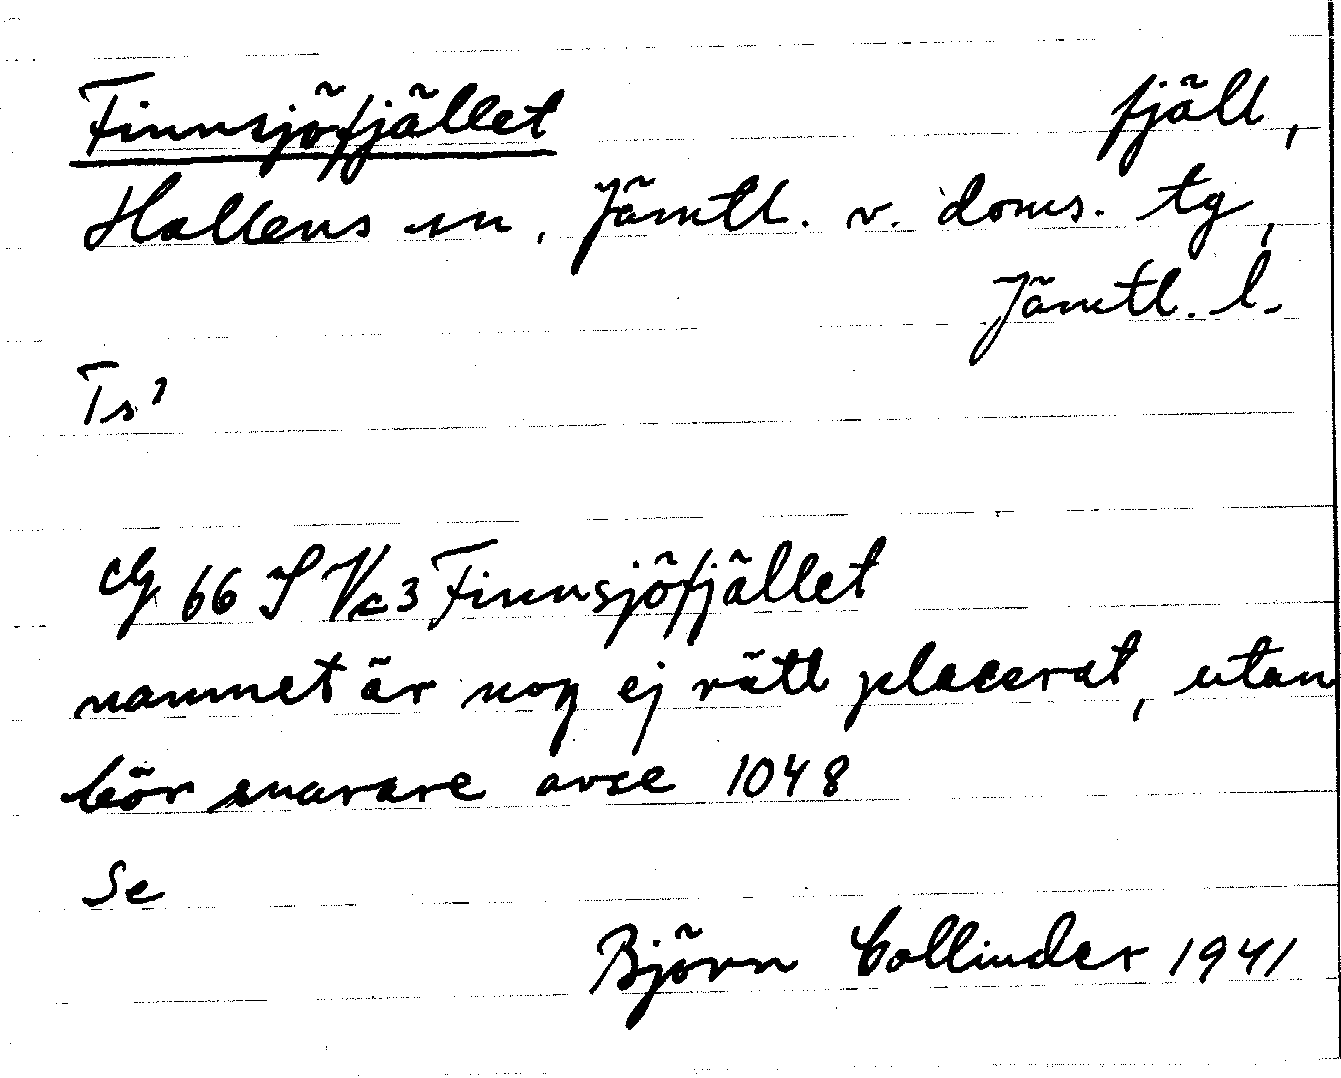 Finnsjöfjället fjäll,
Hallens sn, Jämtl. v. doms. tg,
Jämtl. l.
Ts
G 66 S Vc3 Finnsjöfjället
namnet är nog ej rätt placerat, utan
bör snarare avse 1048
Se
Björn Collinder 1941